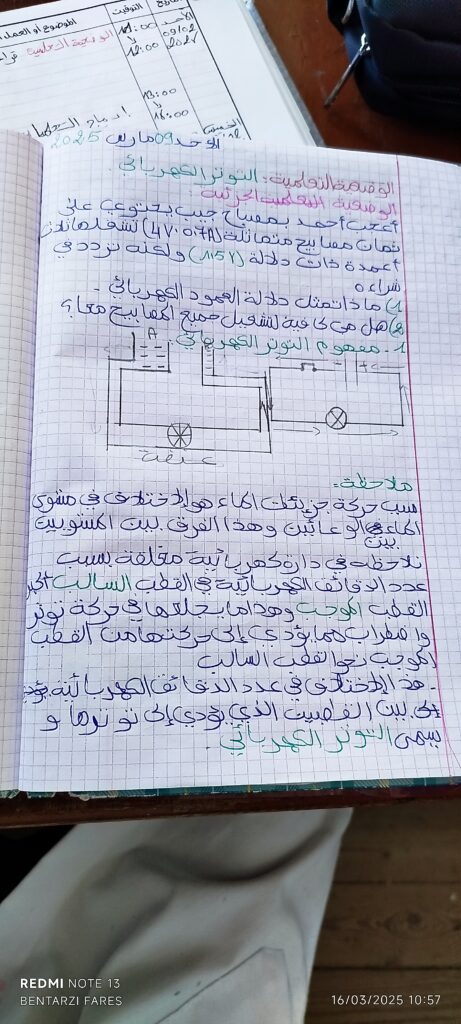 التوقيت
الموضوع أو العمل
الأحد
09/02
2025
11:00
12:00
الوضعية التعلمية
13:00
16:00
الأحد 09 مارس 2025
الوضعية التعلمية: التوتر الكهربائي.
الوضعية التعلمية الجزئية
أعجب أحمد بمصباح جيب يحتوي على
ثمان مصابيح متماثلة (4V. 0.7A) تشغلها ثلاث
أعمدة ذات دلالة (1.5V) ولكنه تردد في
شراءه
1) ماذا تمثل دلالة العمود الكهربائي -
2) هل هي كافية لتشغيل جميع المصابيح معا؟
1 - مفهوم التوتر الكهربائي.
A
عنفة
ملاحظة:
سبب حركة جزيئات الماء هو الإختلاف في مستوى
الماء في الوعائين وهذا الفرق بين المستويين
بين
نلاحظه في دارة كهربائية مغلقة بسبب
عدد الدقائق الكهربائية في القطب السالب
القطب الموجب وهذا ما يجعلها في حركة توتر
واضطراب مما يؤدي إلى حركتها من القطب
الموجب نحو القطب السالب
- هذا الإختلاف في عدد الدقائق الكهربائية
بين القطبين الذي يؤدي إلى توترها و
يسمى التوتر الكهربائي.
REDMI NOTE 13
BENTARZI FARES
16/03/2025 10:57